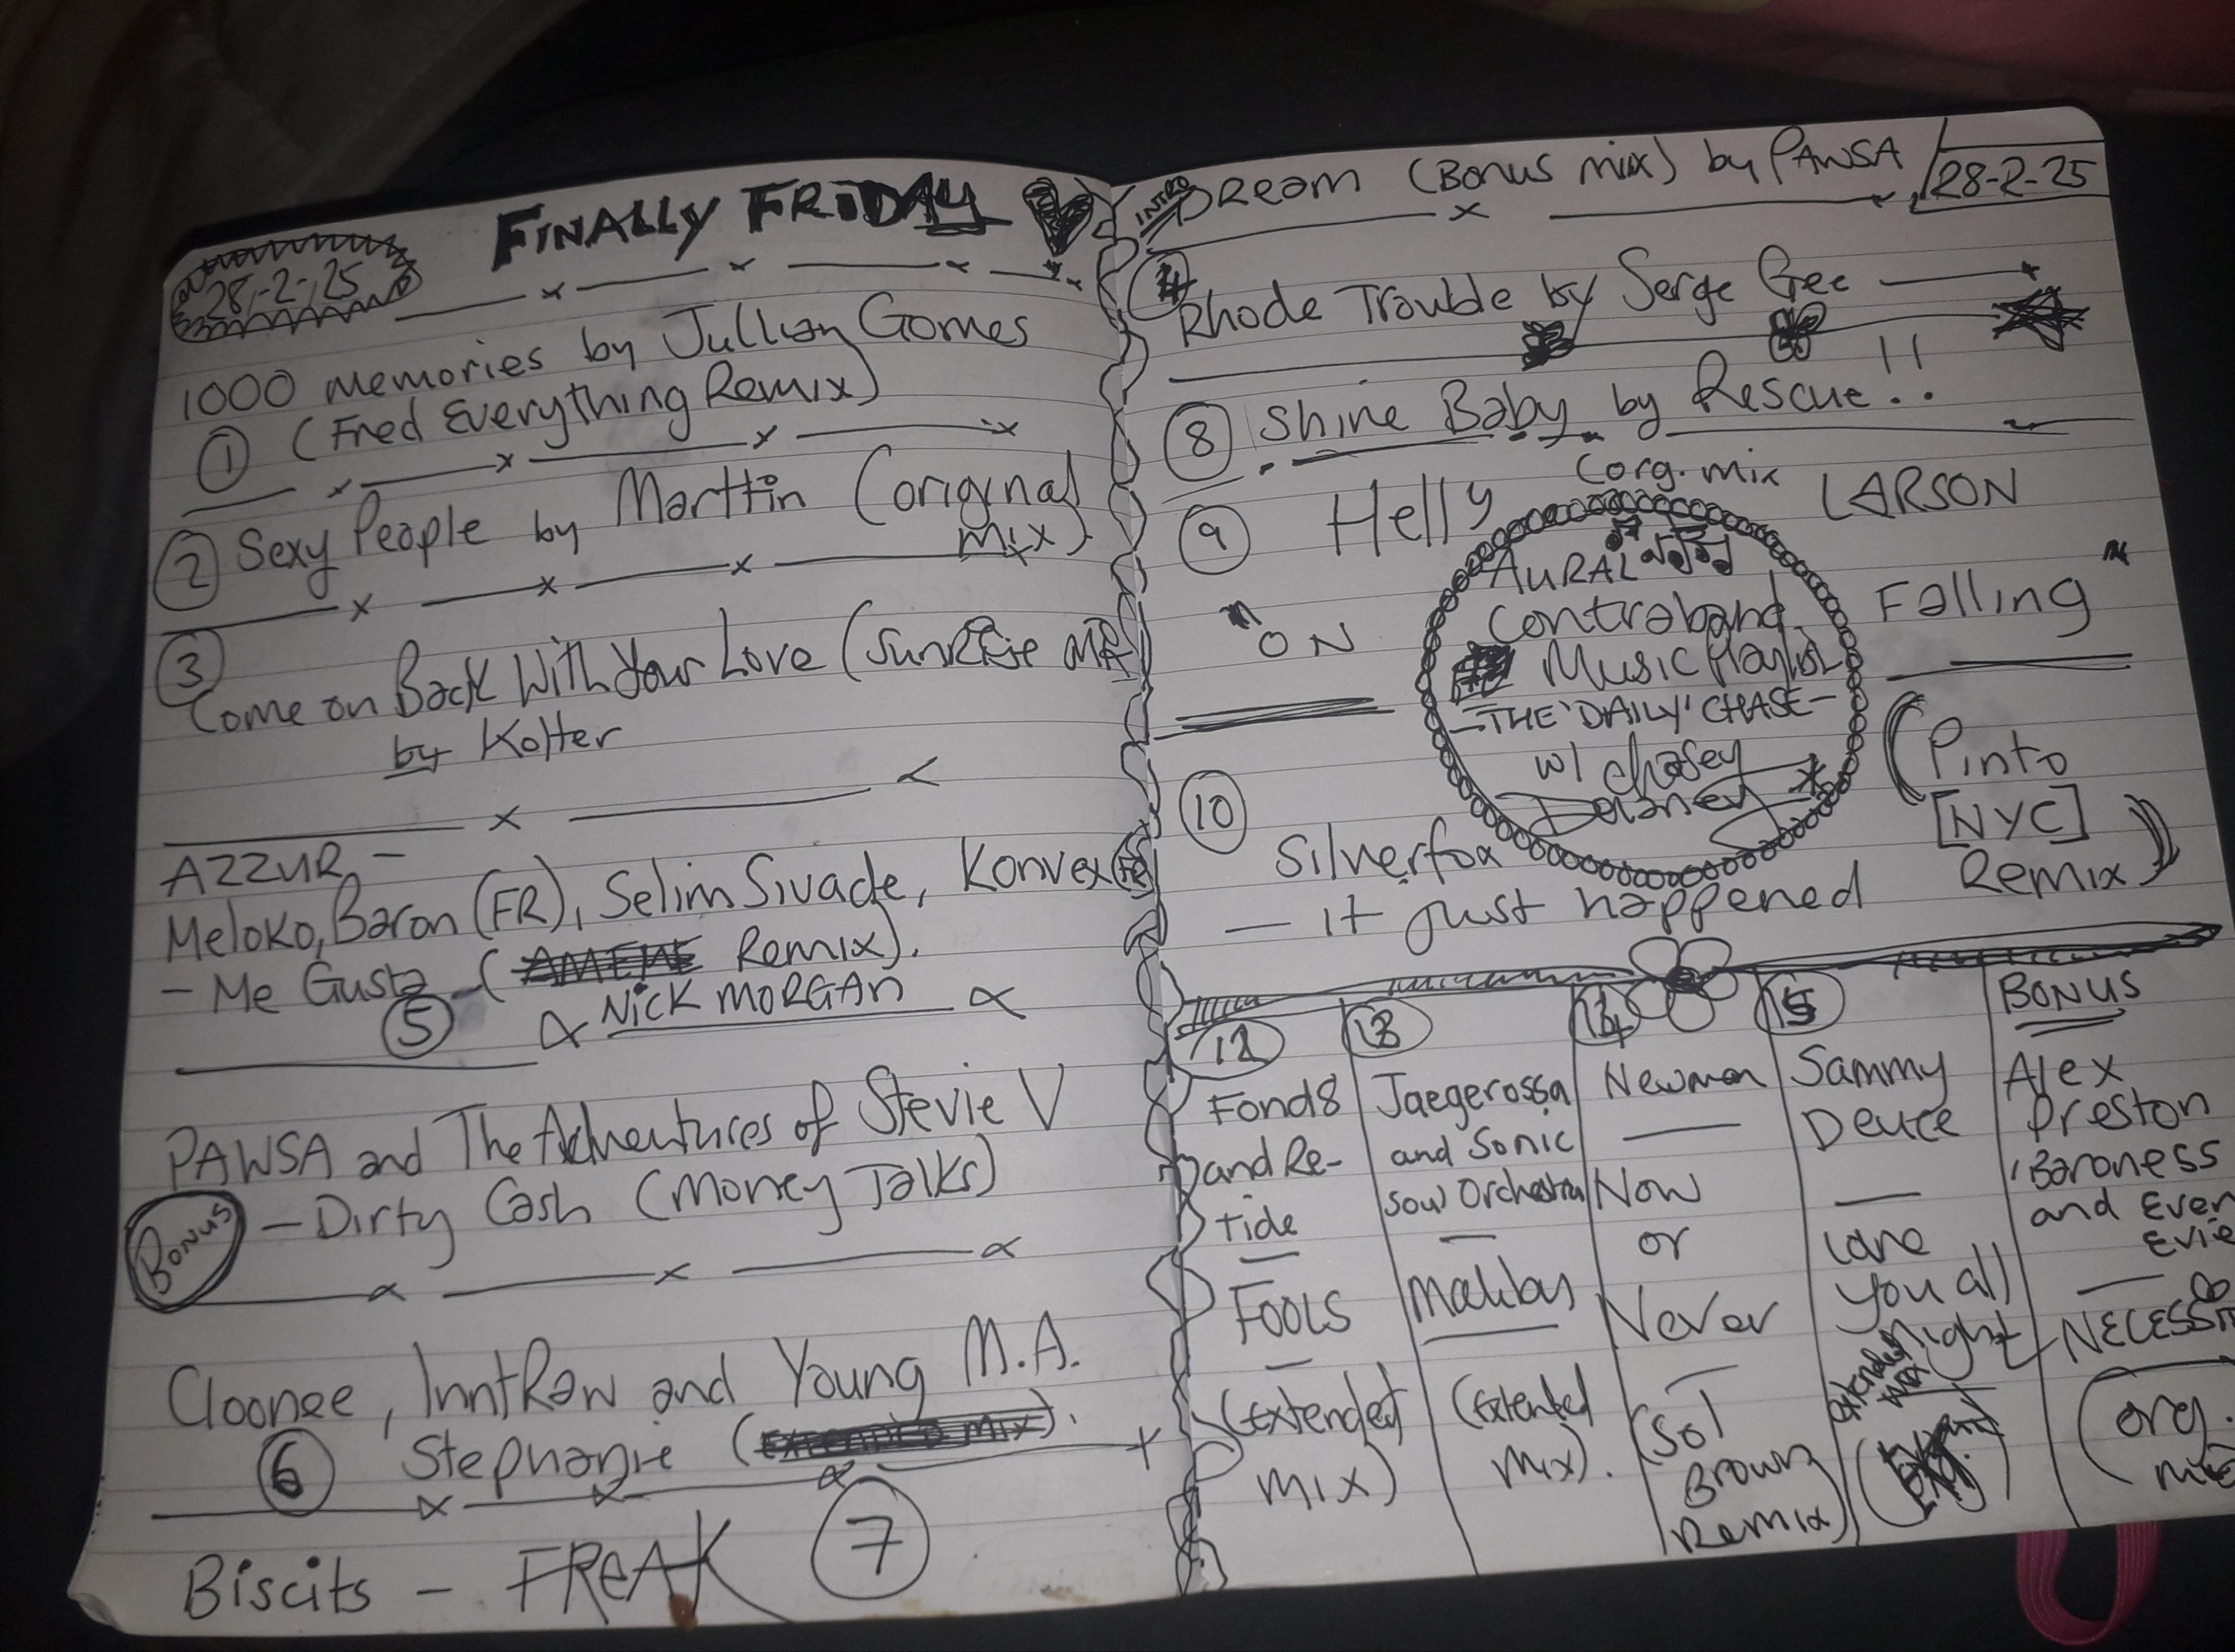 FINALLY FRIDAY
28-2-25
1000 memories by Jullian Gomes
① (Fred Everything Remix)
② Sexy People by Marttin (original
mix)
③
Come on Back With Your Love (Sunrise
by Kolter
AZZUR -
Meloko, Baron (FR), Selim Sivade, Konvex (FR)
- Me Gusta - ( Remix).
⑤ NICK MORGAN
PAWSA and The Adventures of Stevie V
Bonus - Dirty Cash (Money Talks)
Cloonee, InntRaw and Young M.A.
⑥ Stephanie (EXTENDED MIX).
Biscits - FREAK ⑦
INTRO Dream (Bonus mix) by PAWSA 28-2-25
④
Rhode Trouble by Serge Gee
⑧ Shine Baby by Rescue!!
(org. mix
⑨ Helly LARSON
"ON Falling"
AURAL
Contraband
Music Playlist
-THE 'DAILY' CHASE-
w/ Chasey
Delaney
(Pinto
[NYC]
Remix)
⑩
Silverfox
- it just happened
12
Fond8
and Re-
tide
—
FOOLS
—
(extended
MIX)
13
Jaegerossa
and Sonic
Soul Orchestra
—
Malibu
(Extended
Mix).
14
Newman
—
Now
or
Never
—
(Sol
Brown
Remix)
15
Sammy
Deuce
—
Love
you all
Night
extended
mix
BONUS
Alex
Preston
'Baroness
and Even
Evie
—
(org.